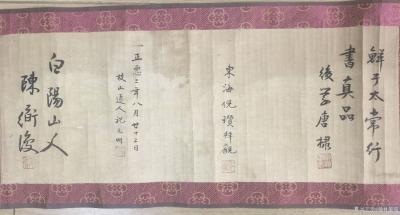 鮮于太常行
書真品
後學唐棣
東海倪瓚拜觀
一正德二年八月廿十三日
枝山道人祝允明
白陽山人
陳衜復